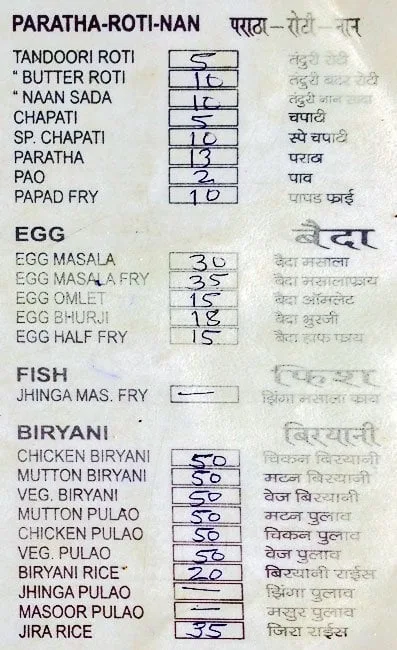 PARATHA-ROTI-NAN पराठा – रोटी – नान
TANDOORI ROTI 5 तंदुरी रोटी
" BUTTER ROTI 10 तंदुरी बटर रोटी
" NAAN SADA 10 तंदुरी नान सादा
CHAPATI 5 चपाटी
SP. CHAPATI 10 स्पे चपाटी
PARATHA 13 पराठा
PAO 2 पाव
PAPAD FRY 10 पापड फ्राई
EGG बैदा
EGG MASALA 30 बैदा मसाला
EGG MASALA FRY 35 बैदा मसालाफ्राय
EGG OMLET 15 बैदा ऑमलेट
EGG BHURJI 18 बैदा भुरजी
EGG HALF FRY 15 बैदा हाफ फ्राय
FISH फिश
JHINGA MAS. FRY — झिंगा मसाला फ्राय
BIRYANI बिरयानी
CHICKEN BIRYANI 50 चिकन बिरयानी
MUTTON BIRYANI 50 मटन बिरयानी
VEG. BIRYANI 50 वेज बिरयानी
MUTTON PULAO 50 मटन पुलाव
CHICKEN PULAO 50 चिकन पुलाव
VEG. PULAO 50 वेज पुलाव
BIRYANI RICE 20 बिरयानी राईस
JHINGA PULAO — झिंगा पुलाव
MASOOR PULAO — मसुर पुलाव
JIRA RICE 35 जिरा राईस